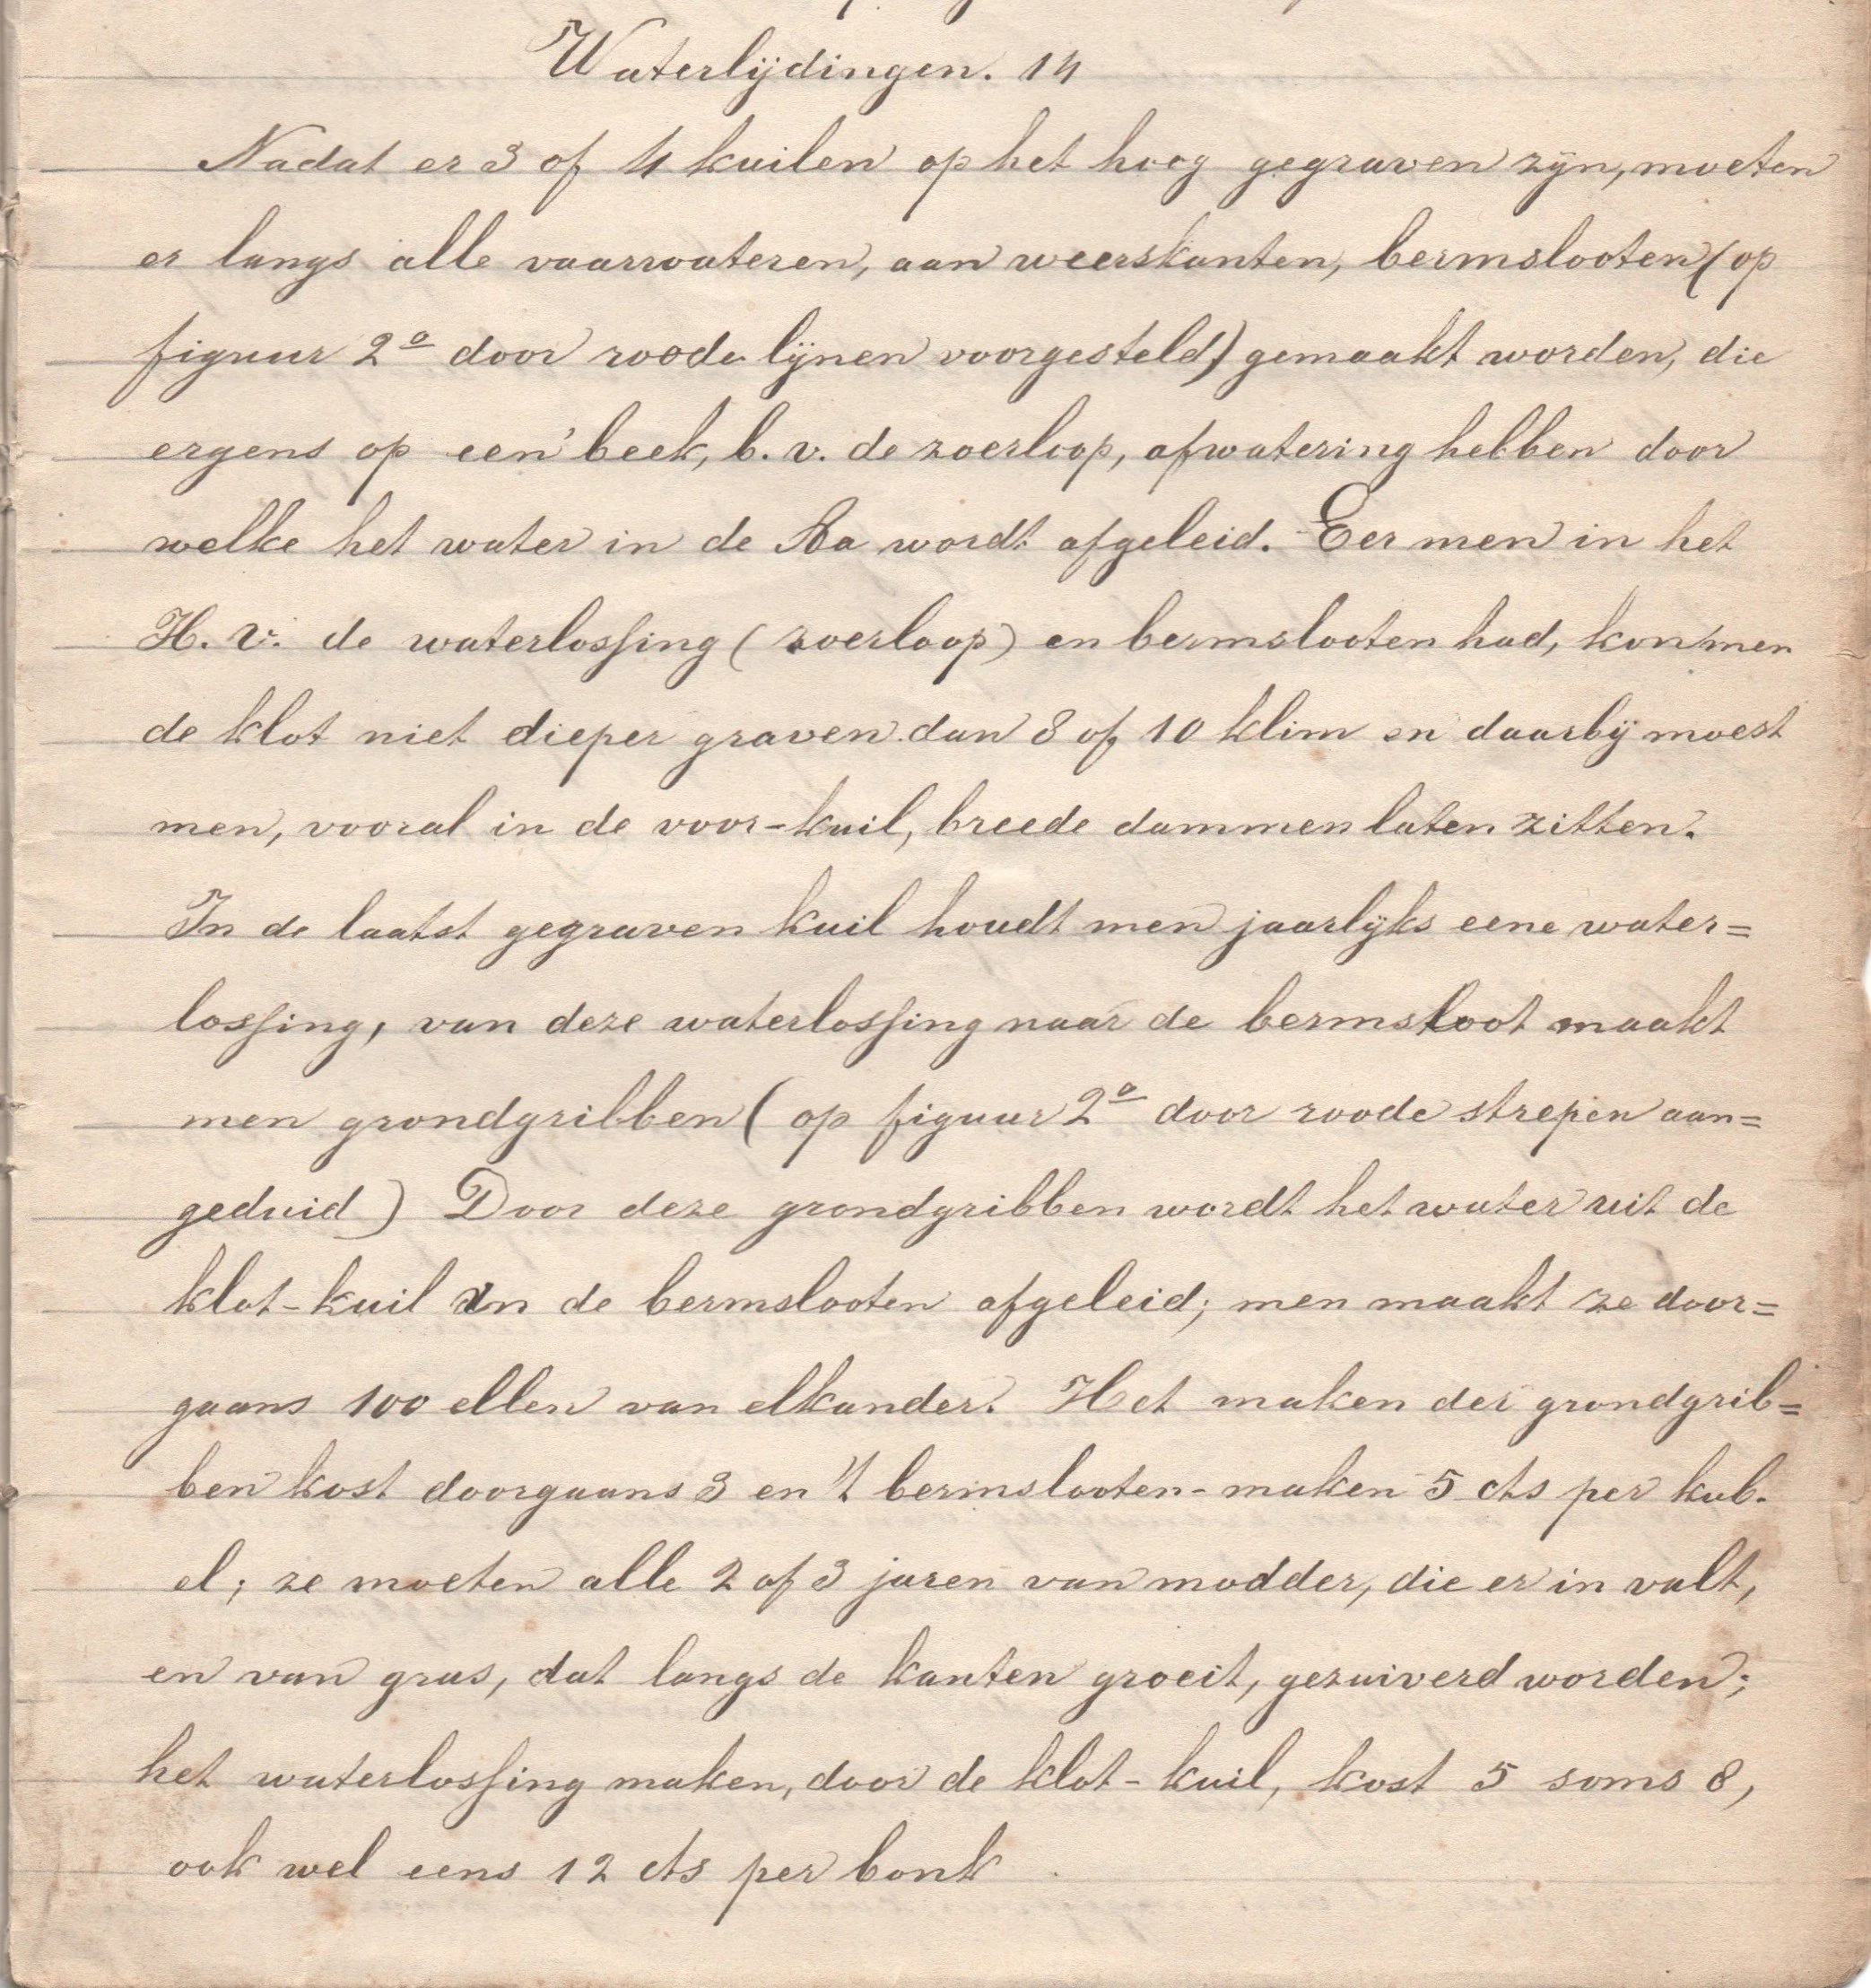 Waterlijdingen. 14
Nadat er 3 of 4 kuilen op het hoog gegraven zijn, moeten
er langs alle vaarwateren, aan weerskanten, bermslooten (op
figuur 2a door roode lijnen voorgesteld) gemaakt worden, die
ergens op een' beek, b. v. de zoerloop, afwatering hebben door
welke het water in de Aa wordt afgeleid. Eer men in het
H. v. de waterlossing (zoerloop) en bermslooten had, kon men
de klot niet dieper graven dan 8 of 10 klim en daarbij moest
men, vooral in de voor-kuil, breede dammen laten zitten.
In de laatst gegraven kuil houdt men jaarlijks eene water=
lossing, van deze waterlossing naar de bermsloot maakt
men grondgribben (op figuur 2a door roode strepen aan=
geduid) Door deze grondgribben wordt het water uit de
klot-kuil in de bermslooten afgeleid; men maakt ze door=
gaans 100 ellen van elkander. Het maken der grondgrib=
ben kost doorgaans 3 en 't bermslooten-maken 5 cts per kub.
el; ze moeten alle 2 of 3 jaren van modder, die er in valt,
en van gras, dat langs de kanten groeit, gezuiverd worden;
het waterlossing maken, door de klot-kuil, kost 5 soms 8,
ook wel eens 12 cts per bonk